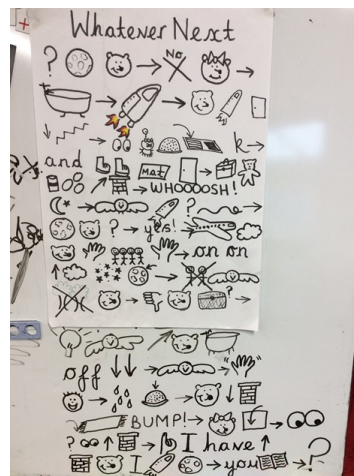 Whatever Next
? → No →
→ →
→ k→
and Mat →
→ WHOOOOSH!
→ ? →
? → yes! →
→ on on
↑ →
→ ? →
off ↓↓ → 
→ → ↓
BUMP! → →
? ↑ → I have ↑
I → you → !?